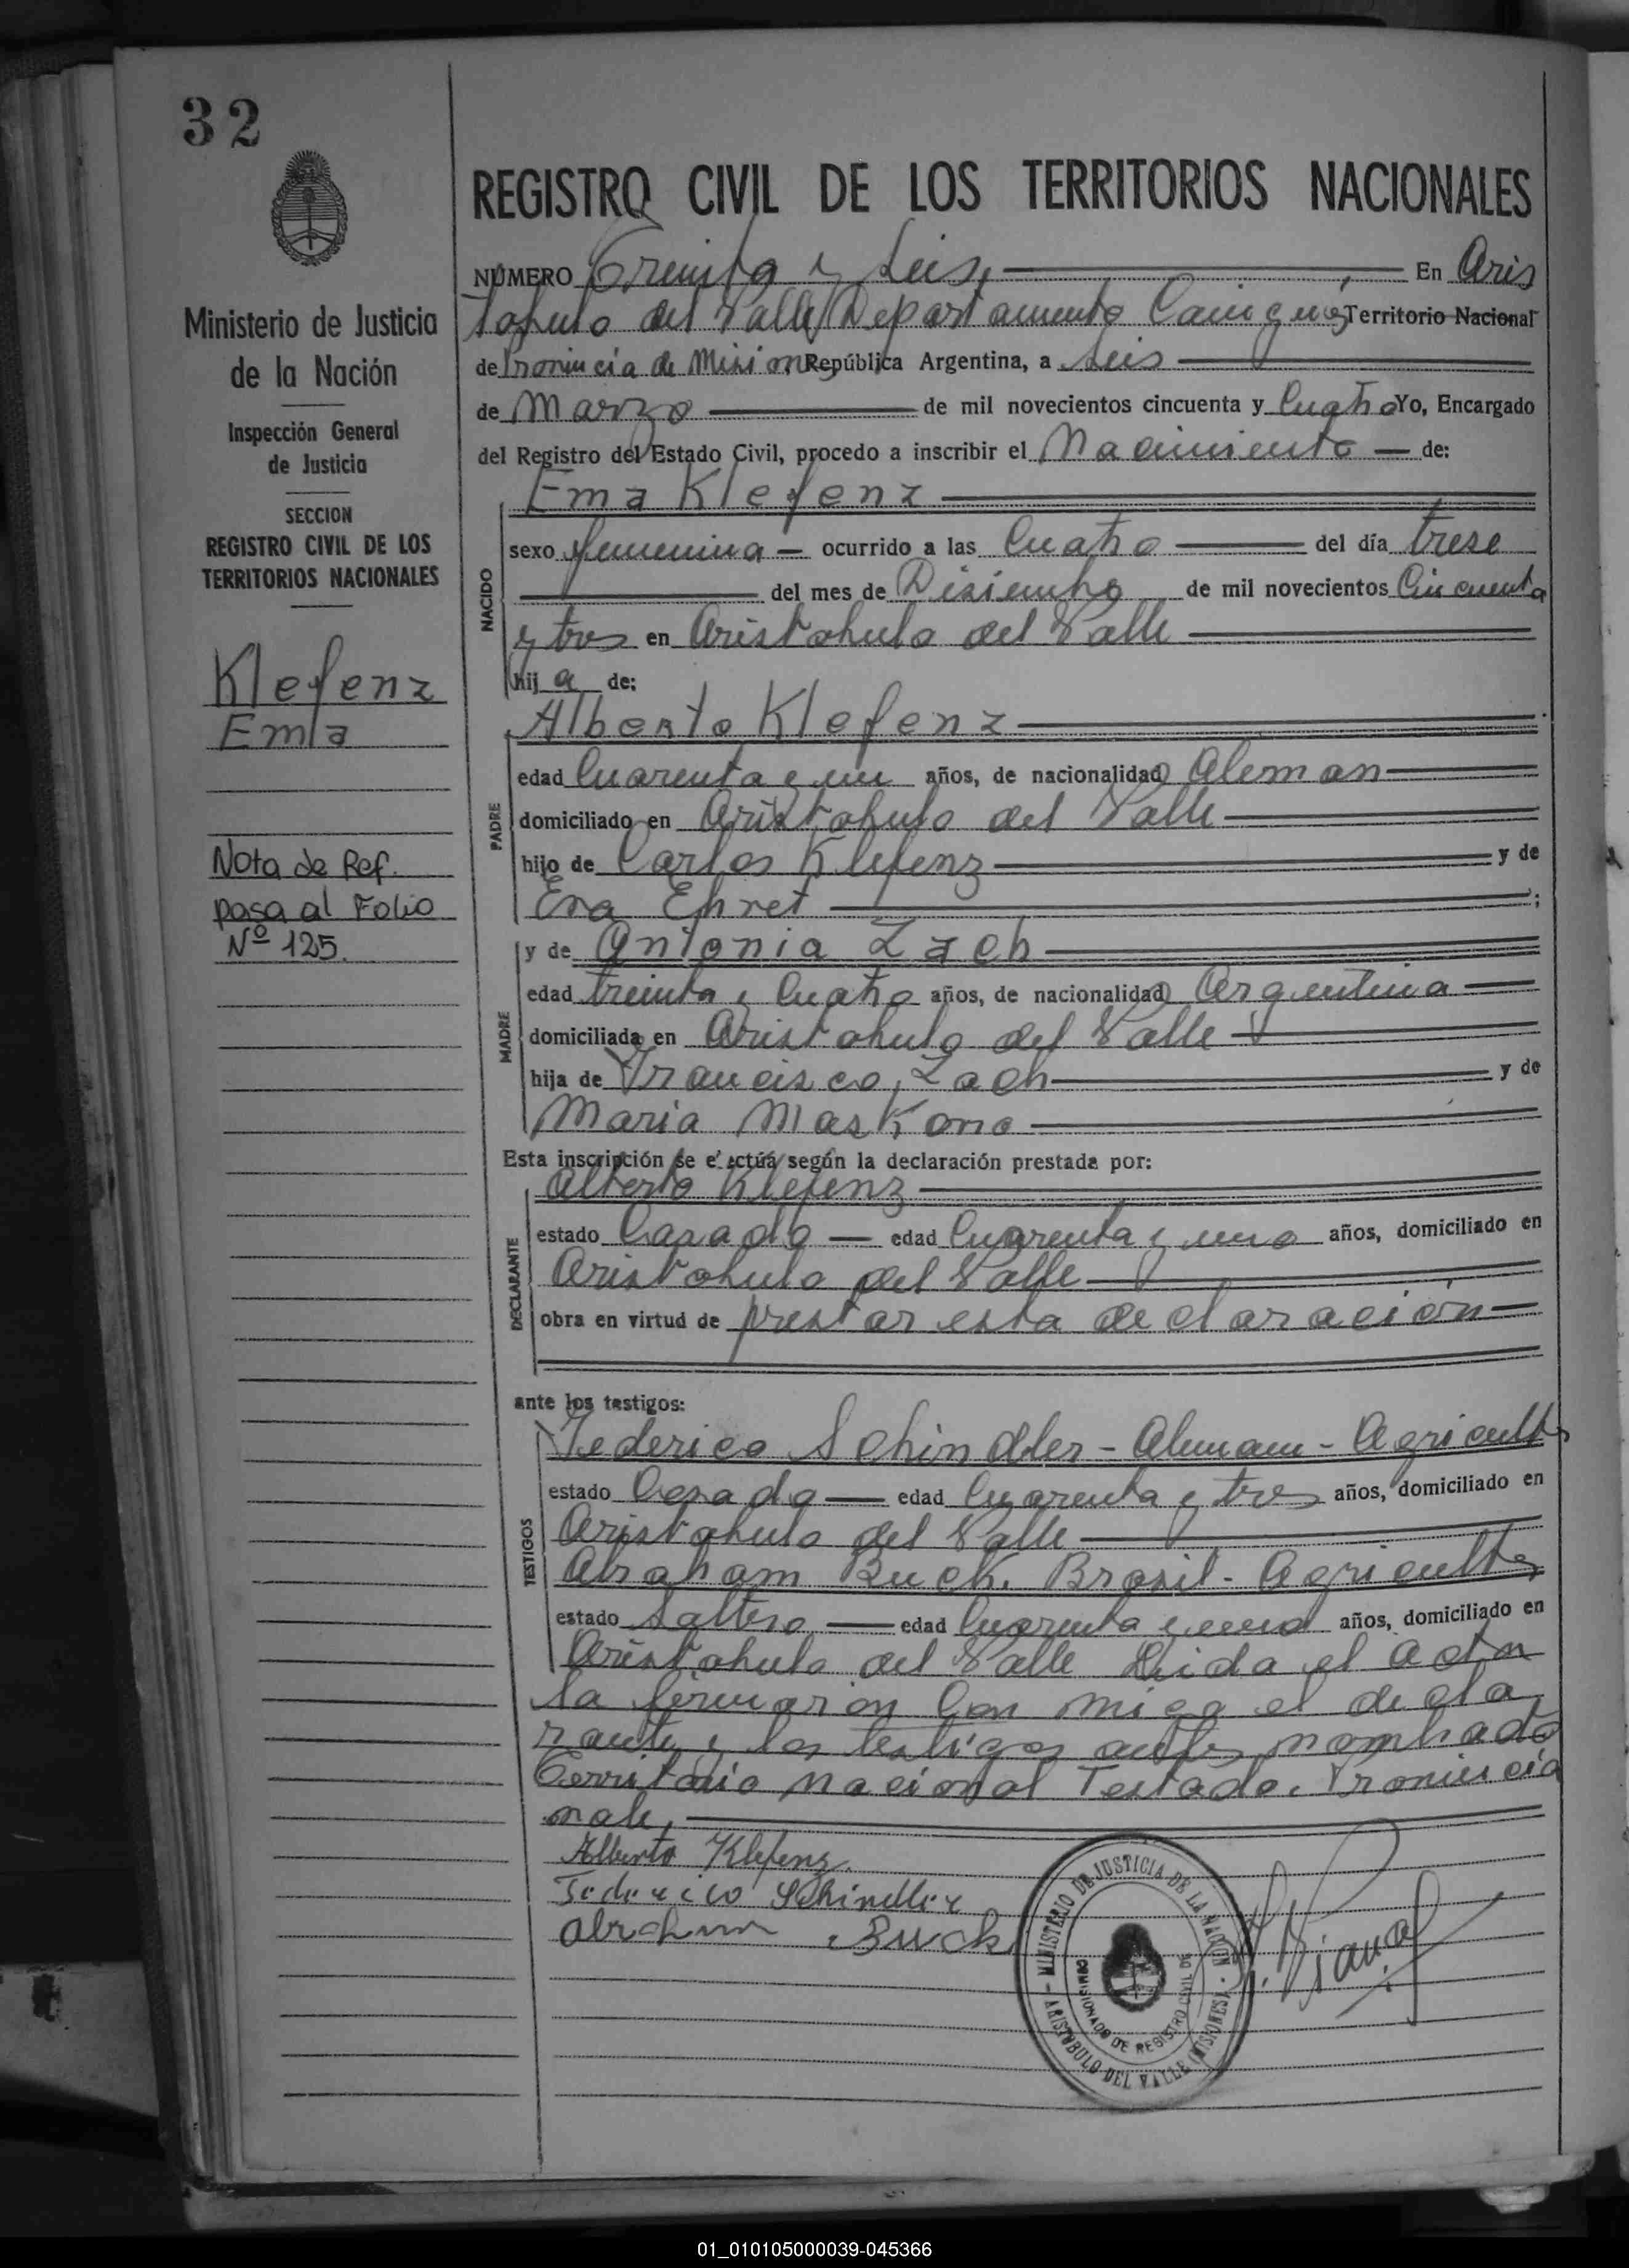 32
REGISTRO CIVIL DE LOS TERRITORIOS NACIONALES
Ministerio de Justicia
de la Nación
Inspección General
de Justicia
SECCION
REGISTRO CIVIL DE LOS
TERRITORIOS NACIONALES
Klefenz
Ema
Nota de Ref.
pasa al Folio
Nº 125.
NÚMERO Treinta y Seis, En Aris
tobulo del Valle Departamento Cainguás Territorio Nacional
de Provincia de Misiones República Argentina, a Seis
de Marzo de mil novecientos cincuenta y Cuatro Yo, Encargado
del Registro del Estado Civil, procedo a inscribir el Nacimiento de:
NACIDO
Ema Klefenz
sexo femenina ocurrido a las Cuatro del día trese
del mes de Disiembre de mil novecientos Cincuenta
y tres en Aristobulo del Valle
hij a de:
PADRE
Alberto Klefenz
edad Cuarenta y un años, de nacionalidad Aleman
domiciliado en Aristobulo del Valle
hijo de Carlos Klefenz y de
Eva Ehret ;
MADRE
y de Antonia Zach
edad treinta y Cuatro años, de nacionalidad Argentina
domiciliada en Aristobulo del Valle
hija de Francisco, Zach y de
Maria Maskona
Esta inscripción se efectúa según la declaración prestada por:
DECLARANTE
Alberto Klefenz
estado Casado edad Cuarenta y uno años, domiciliado en
Aristobulo del Valle
obra en virtud de prestar esta declaración
ante los testigos:
TESTIGOS
Federico Schindler - Aleman - Agricultor
estado Casado edad Cuarenta y tres años, domiciliado en
Aristobulo del Valle
Abraham Buck. Brasil - Agricultor
estado Soltero edad Cuarenta y uno años, domiciliado en
Aristobulo del Valle Leida el acta
la firmaron Con migo el decla
rante y los testigos antes nombrado
Territorio Nacional Testado. Provincia
vale,
Alberto Klefenz.
Federico Schindler
Abraham Buck
MINISTERIO DE JUSTICIA DE LA NACION
COMISIONADO DE REGISTRO CIVIL DE
ARISTOBULO DEL VALLE (MISIONES)
01_010105000039-045366